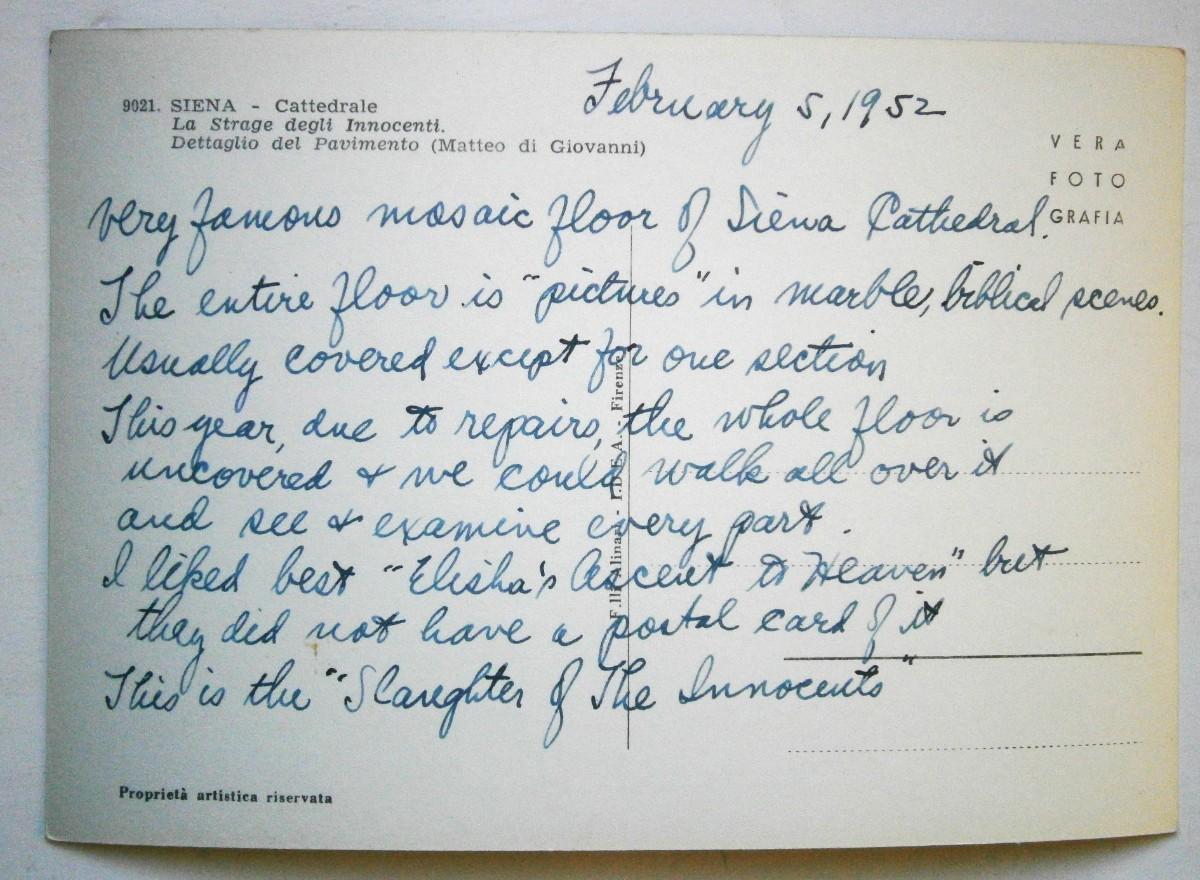 February 5, 1952
9021. SIENA - Cattedrale
La Strage degli Innocenti.
Dettaglio del Pavimento (Matteo di Giovanni)
VERA
FOTO
GRAFIA
Very famous mosaic floor of Siena Cathedral.
The entire floor is "pictures" in marble, biblical scenes.
Usually covered except for one section
This year, due to repairs, the whole floor is
uncovered & we could walk all over it
and see & examine every part.
I liked best "Elisha's Ascent to Heaven" but
they did not have a postal card of it
This is the "Slaughter of The Innocents"
F.lli Alinari - I.D.E.A. - Firenze
Proprietà artistica riservata